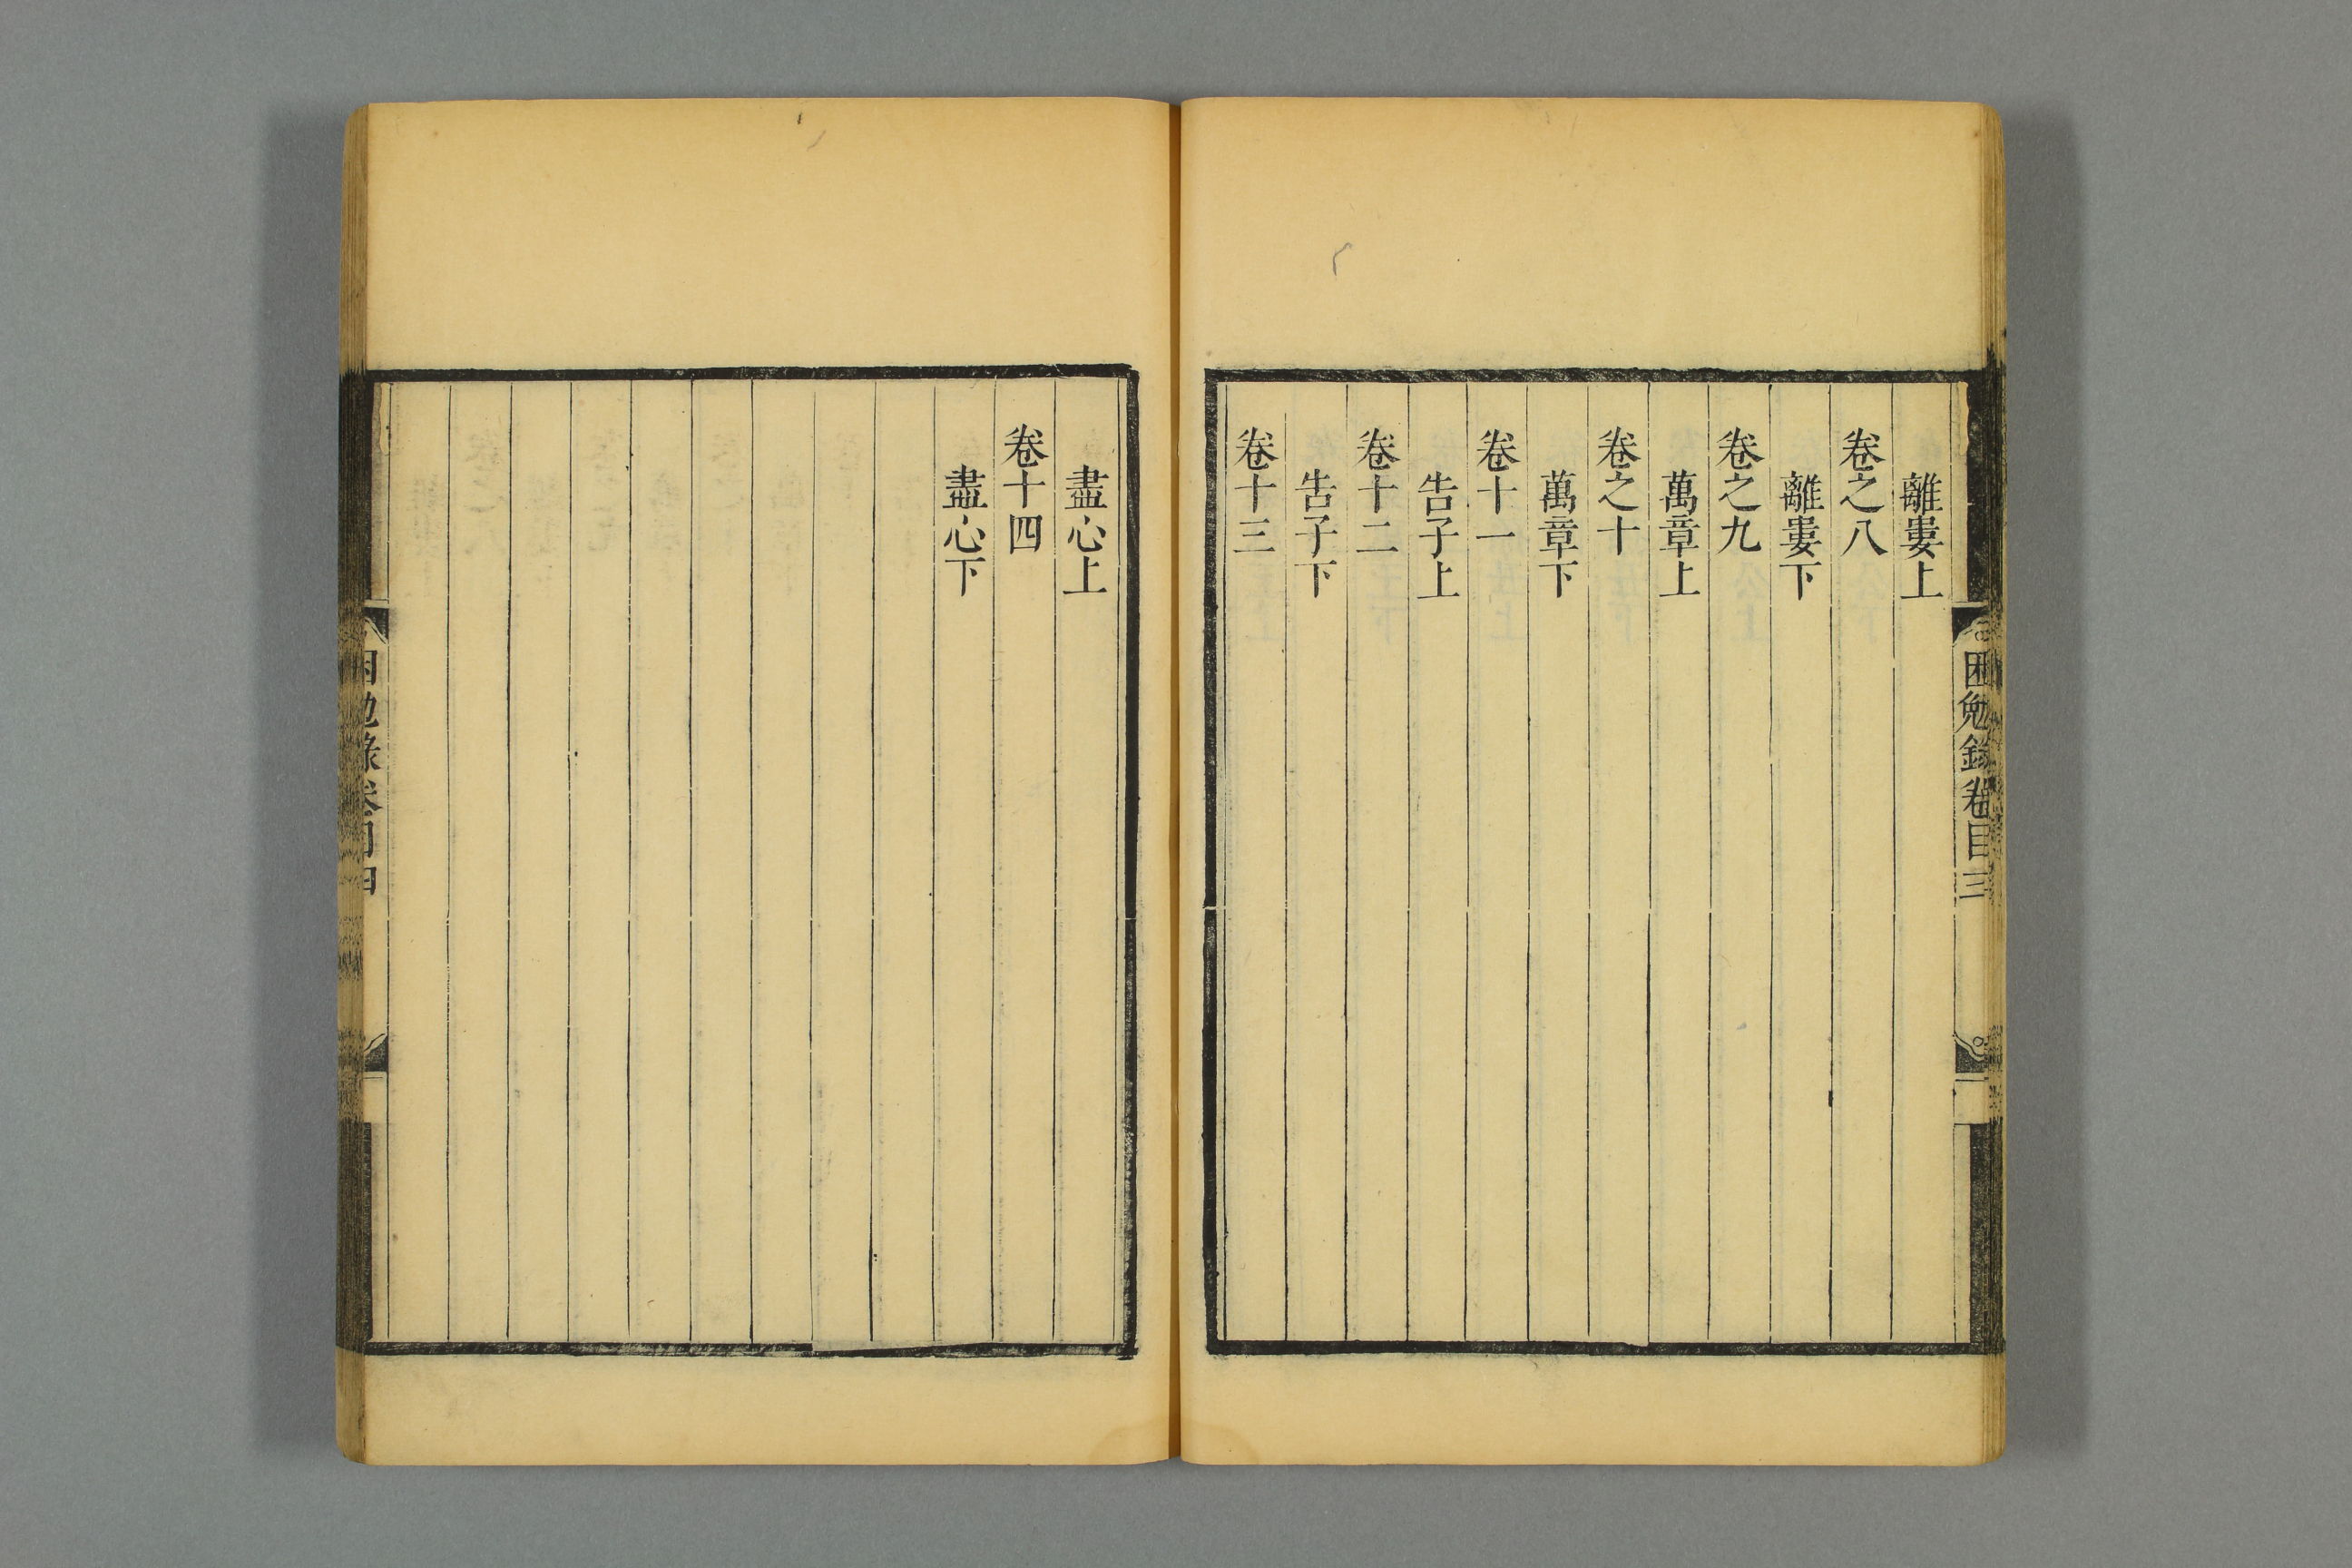 困勉錄卷目三
離婁上
卷之八
離婁下
卷之九
萬章上
卷之十
萬章下
卷十一
告子上
卷十二
告子下
卷十三
盡心上
卷十四
盡心下
困勉錄卷目四